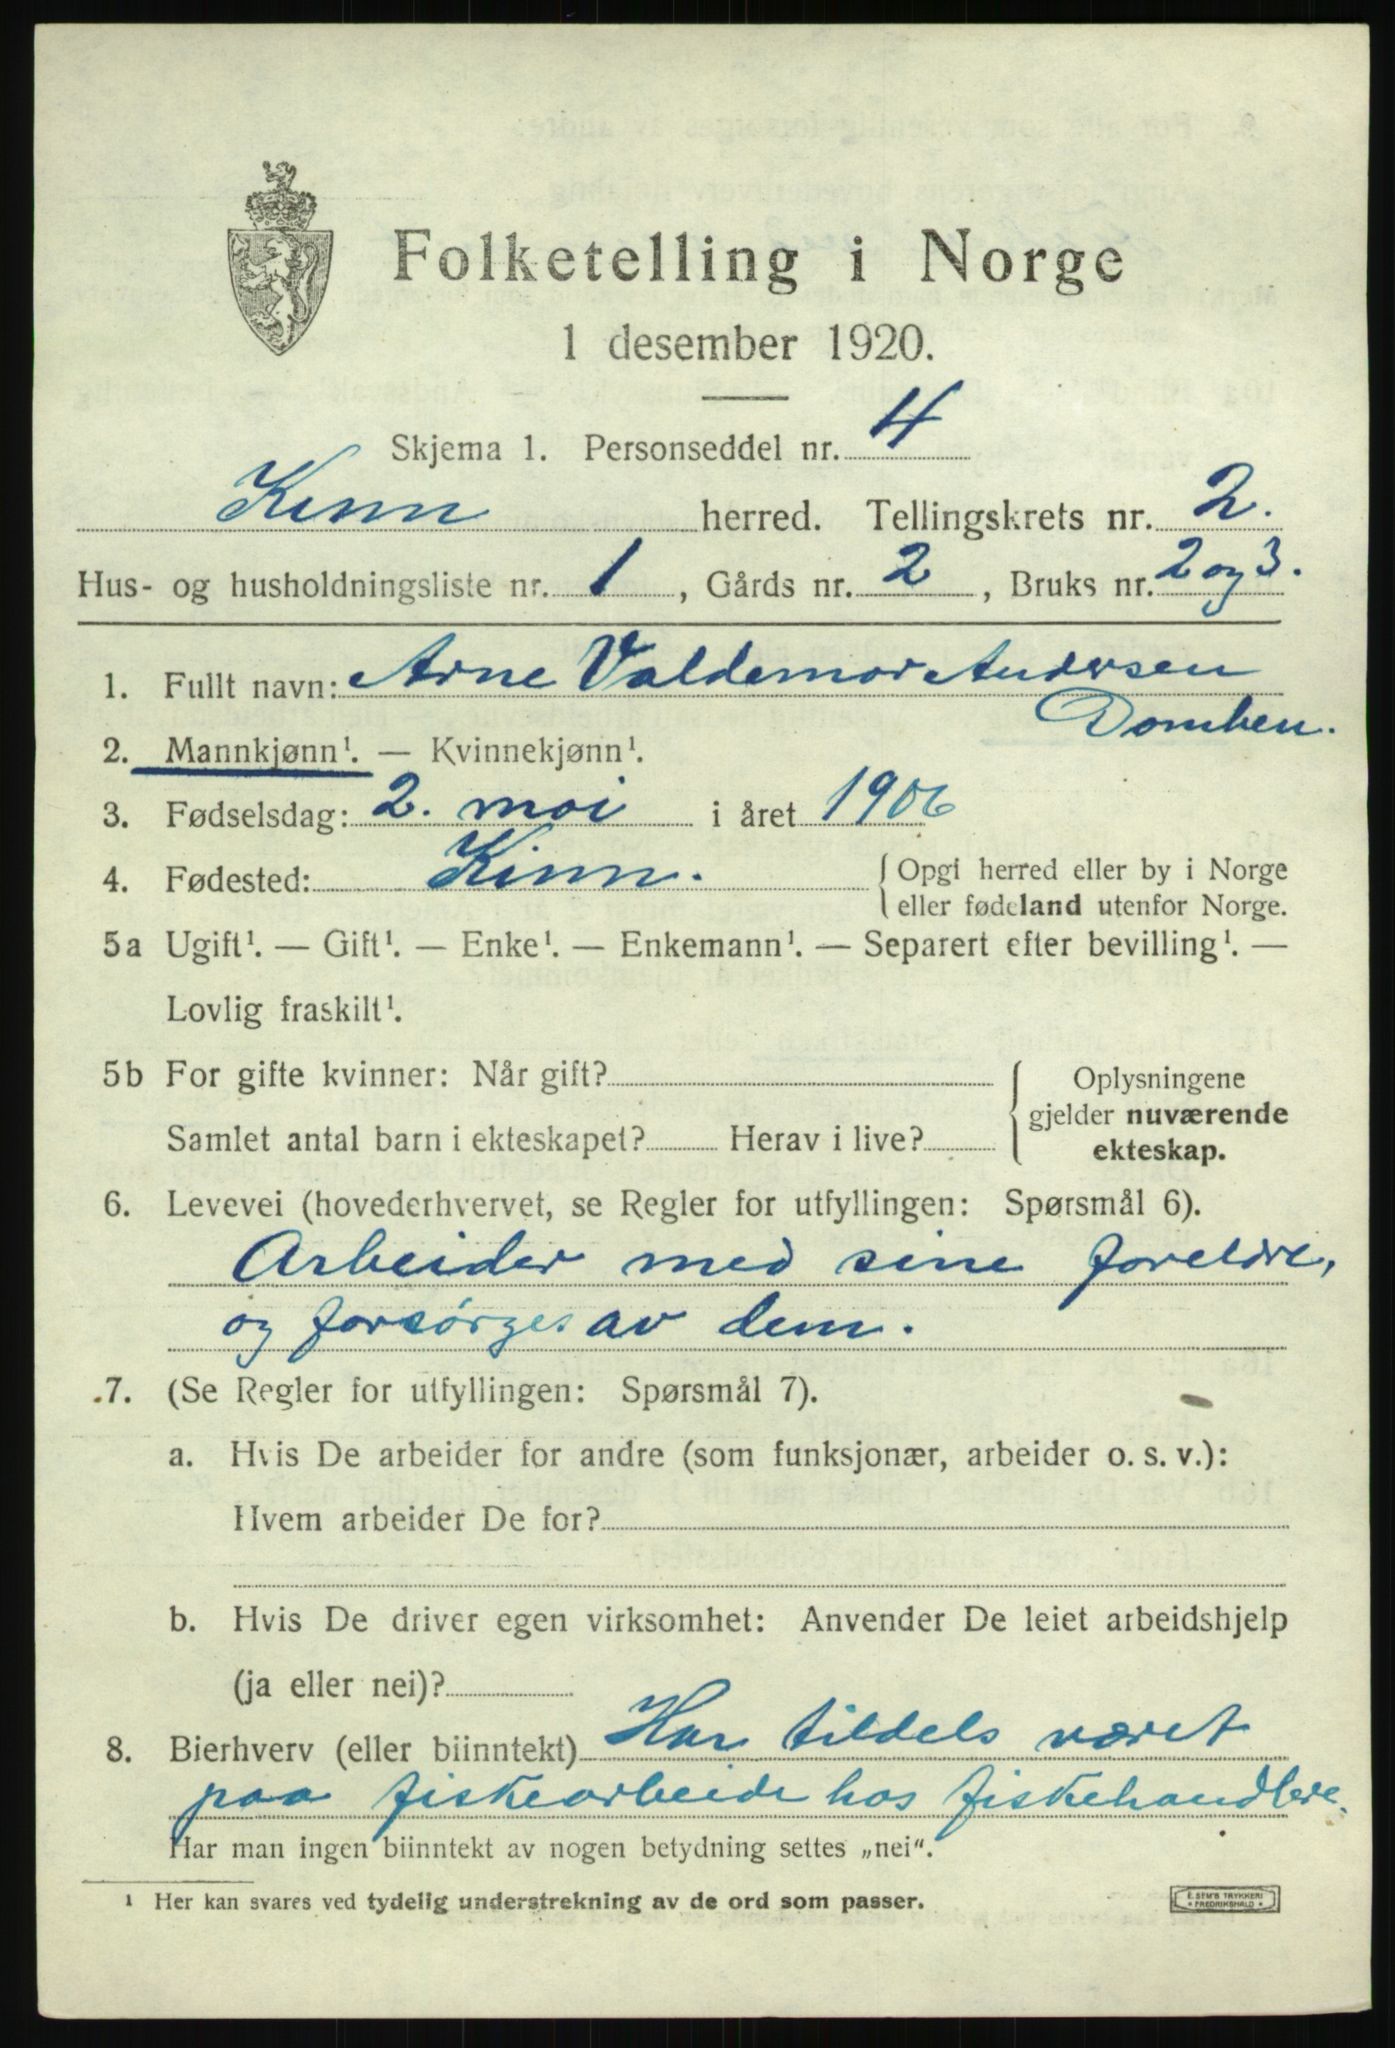 Folketelling i Norge
1 desember 1920.
Skjema 1. Personseddel nr. 4
Kinn herred. Tellingskrets nr. 2.
Hus- og husholdningsliste nr. 1, Gårds nr. 2, Bruks nr. 2 og 3.
1. Fullt navn: Arne Valdemar Andersen
Domben.
2. Mannkjønn¹. — Kvinnekjønn¹.
3. Fødselsdag: 2. mai i året 1906
4. Fødested: Kinn. { Opgi herred eller by i Norge
eller fødeland utenfor Norge.
5a Ugift¹. — Gift¹. — Enke¹. — Enkemann¹. — Separert efter bevilling¹. —
Lovlig fraskilt¹.
5b For gifte kvinner: Når gift? { Oplysningene
gjelder nuværende
Samlet antal barn i ekteskapet? Herav i live? ekteskap.
6. Levevei (hovederhvervet, se Regler for utfyllingen: Spørsmål 6).
Arbeider med sine foreldre,
og forsørges av dem.
7. (Se Regler for utfyllingen: Spørsmål 7).
a. Hvis De arbeider for andre (som funksjonær, arbeider o. s. v.):
Hvem arbeider De for?
b. Hvis De driver egen virksomhet: Anvender De leiet arbeidshjelp
(ja eller nei)?
8. Bierhverv (eller biinntekt) Har tildels været
paa fiskearbeide hos fiskehandlere.
Har man ingen biinntekt av nogen betydning settes „nei“.
¹ Her kan svares ved tydelig understrekning av de ord som passer.
E. SEM'S TRYKKERI
* FREDRIKSHALD *